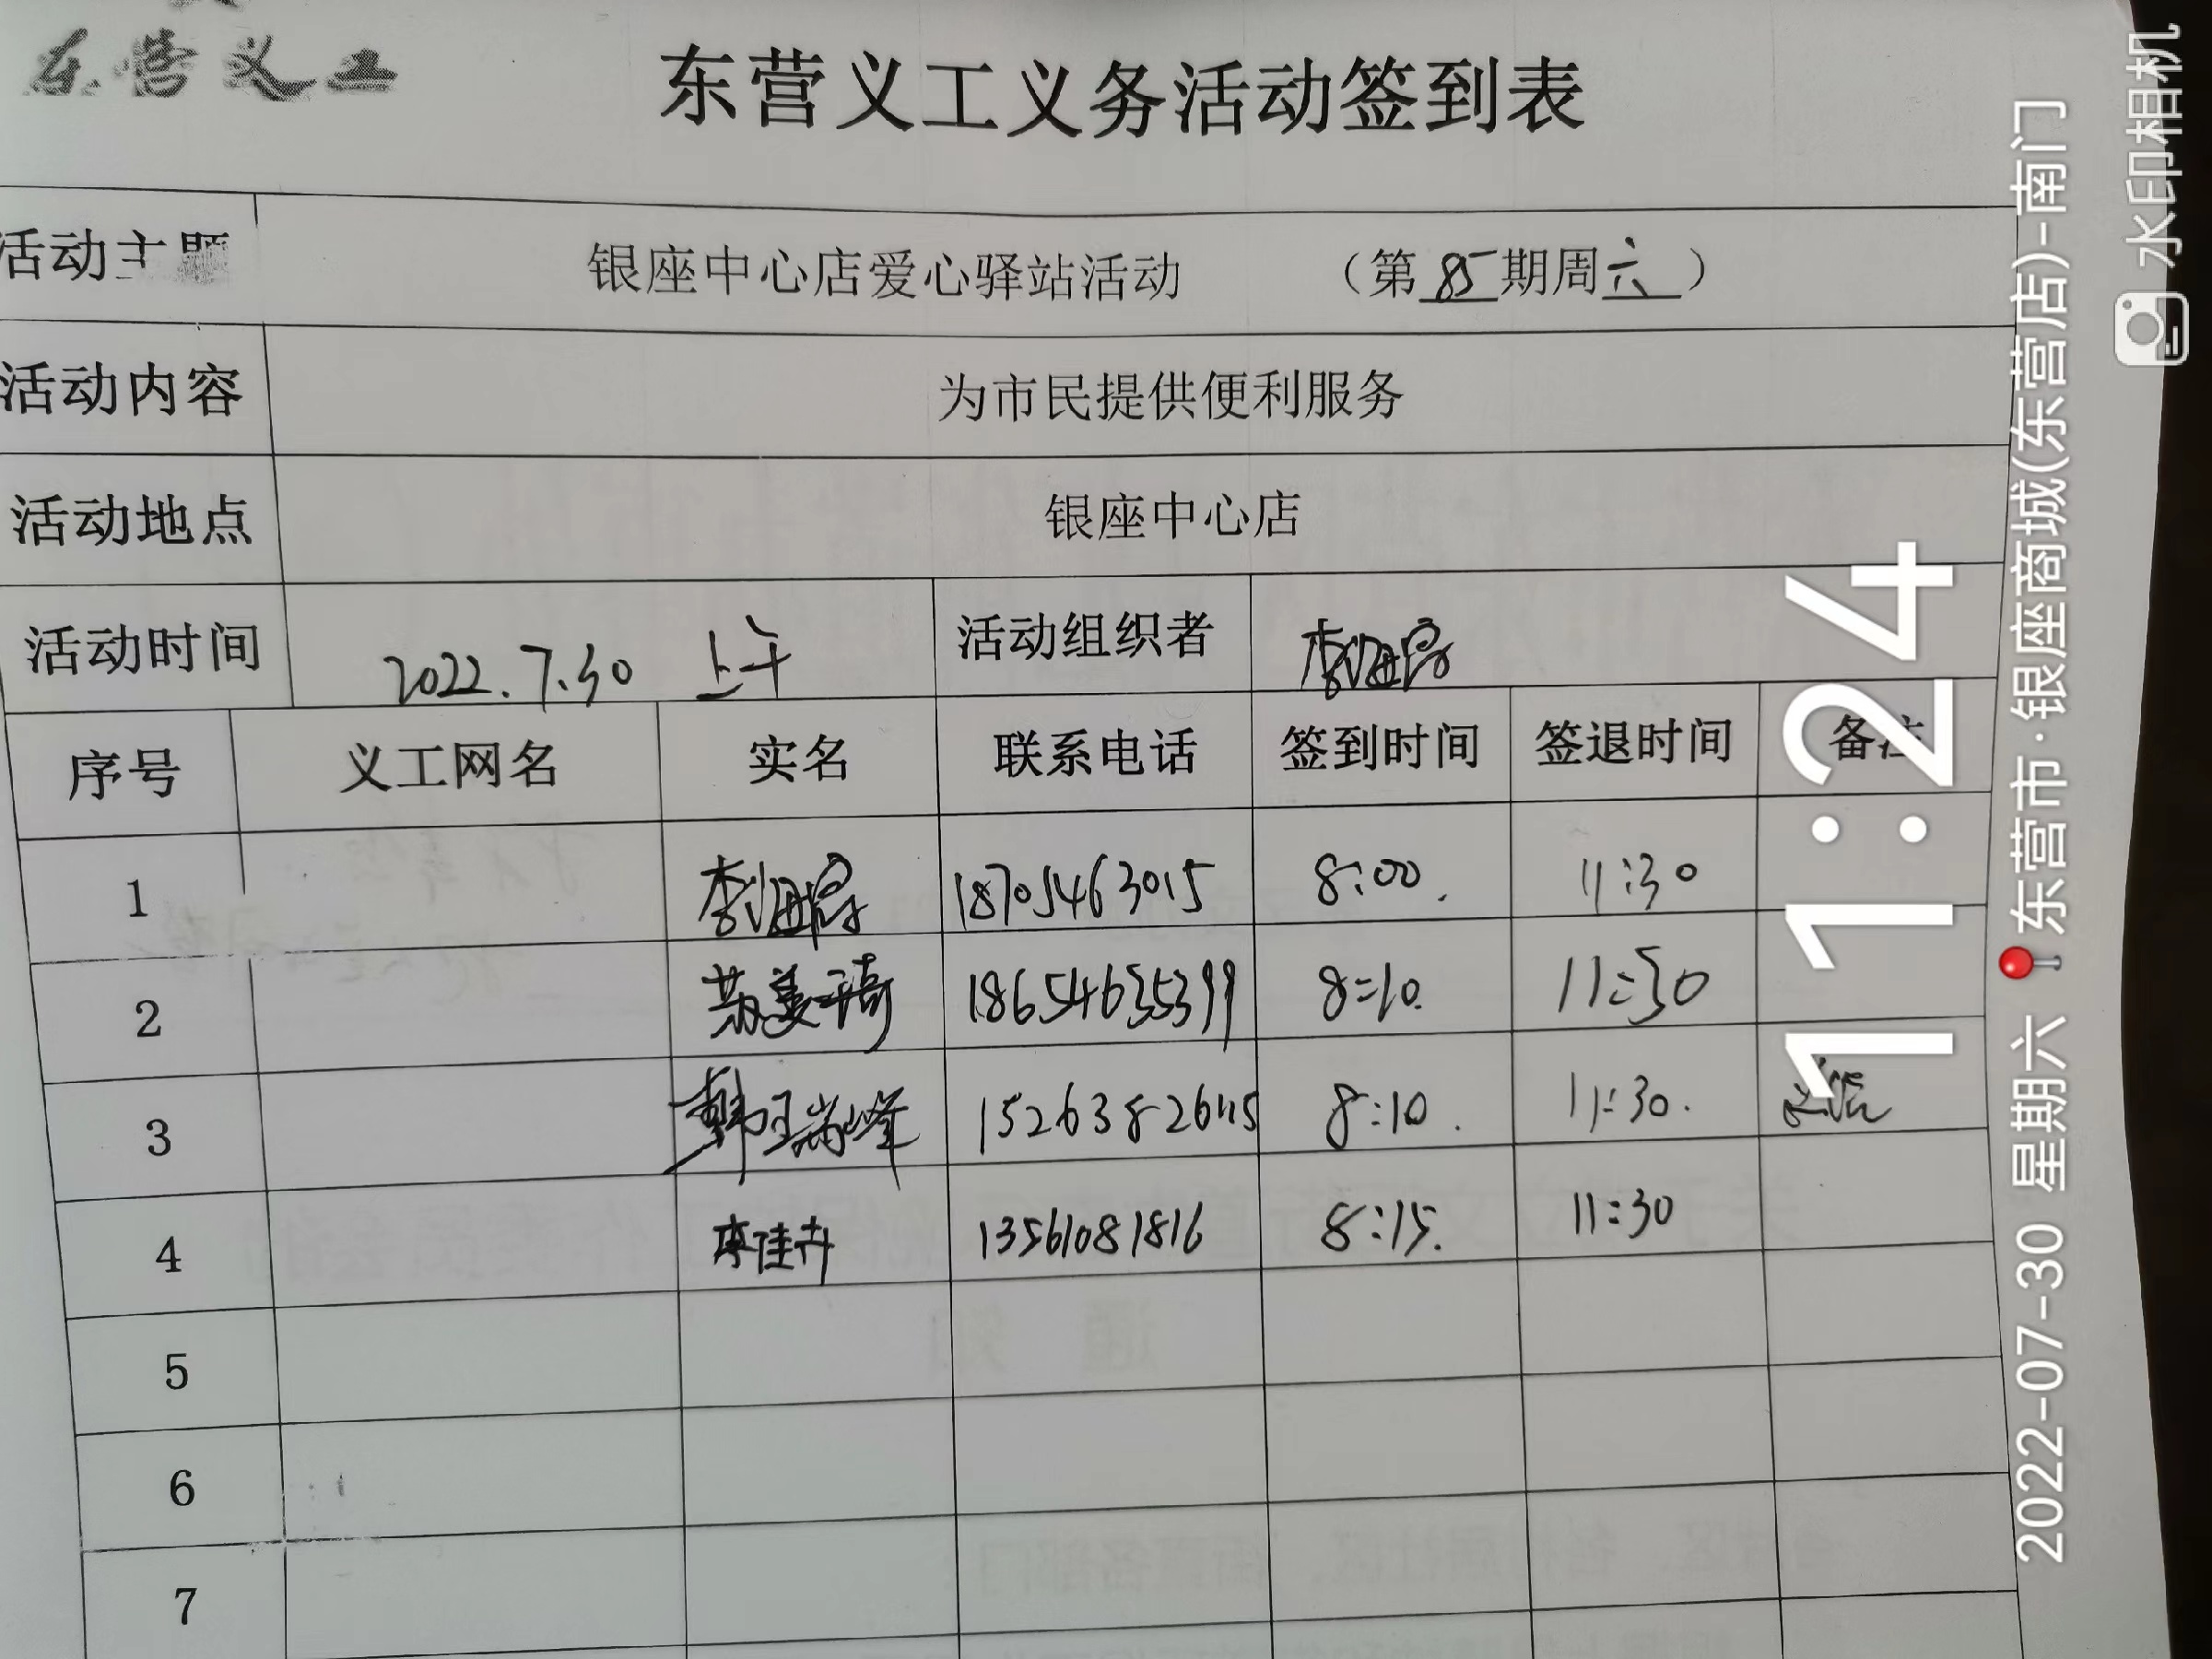 东营义工
东营义工义务活动签到表
活动主题 银座中心店爱心驿站活动 （第85期周六）
活动内容 为市民提供便利服务
活动地点 银座中心店
活动时间 2022.7.30 上午 活动组织者 李
序号 义工网名 实名 联系电话 签到时间 签退时间 备注
1 李 18705463015 8:00. 11:30
2 18654635399 8:10. 11:30
3 韩瑞峰 15263826115 8:10. 11:30.
4 李佳卉 13561081816 8:15. 11:30
5
6
7
11:24
2022-07-30 星期六 东营市·银座商城(东营店)-南门
水印相机